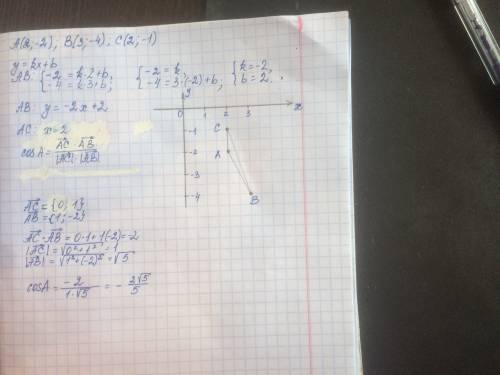 A(2;-2), B(3;-4), C(2;-1)
y=kx+b
AB: {-2=k·2+b, -4=k·3+b; {-2=k, -4=3·(-2)+b; {k=-2, b=2.
AB: y=-2x+2
AC: x=2
cosA = AC·AB / |AC|·|AB|
y
0 1 2 3 x
-1
-2
-3
-4
C
A
B
AC={0; 1}
AB={1; -2}
AC·AB=0·1+1(-2)=-2
|AC|=√0²+1²=1
|AB|=√1²+(-2)²=√5
cosA = -2 / 1·√5 = - 2√5 / 5